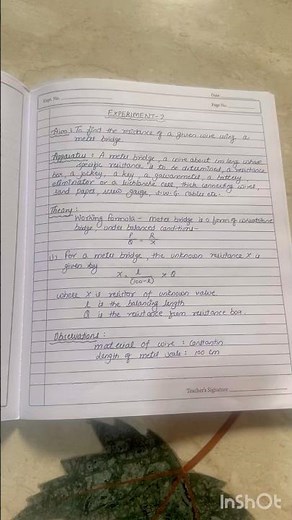 Expt. No.
Date
Page No.
EXPERIMENT-2
Aim: To find the resistance of a given wire using a
metre bridge.
Apparatus: A metre bridge, a wire about 1m long whose
specific resistance is to be determined, a resistance
box, a jockey, a key, a galvanometer, a battery
eliminator or a leclanche cell, thick connecting wires,
sand paper, screw gauge,
Theory:
Working formula - metre bridge is a form of wheatstone
bridge, under balanced conditions -
P/Q = R/X
For a metre bridge, the unknown resistance X is
given by
X = l/(100-l) × Q
where X is resistor of unknown value.
l is the balancing length
Q is the resistance from resistance box.
Observations:
material of wire: constantan
length of metre scale: 100 cm
Teacher's Signature
InShOt